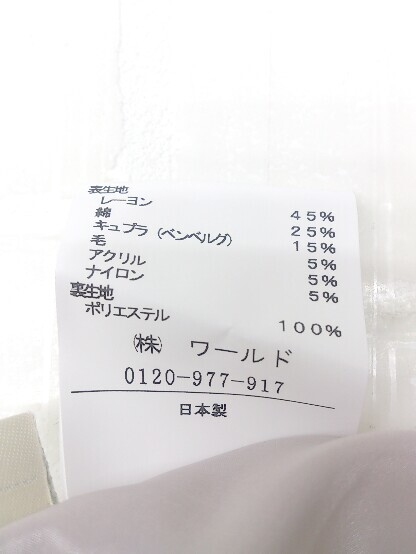 表生地
レーヨン 45%
綿 25%
キュプラ（ベンベルグ） 15%
毛 5%
アクリル 5%
ナイロン 5%
裏生地
ポリエステル 100%
（株） ワールド
0120-977-917
日本製